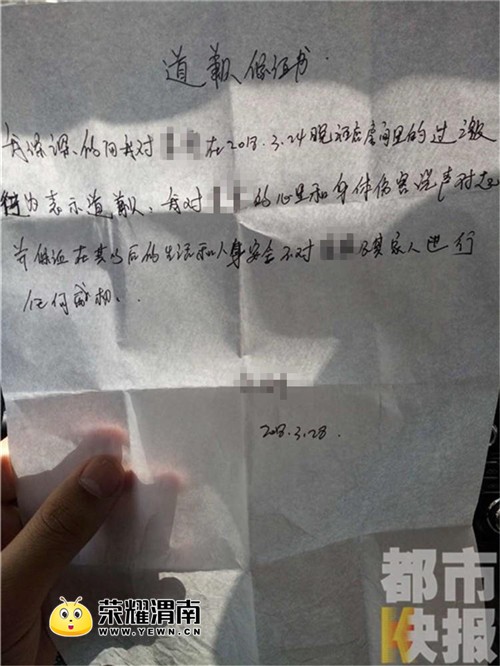 道歉保证书
我深深的因我对 在2018.3.24晚酒店房间里的过激
行为表示道歉、我对 的心里和身体伤害说声对不起
并保证在其以后的生活和人身安全不对 及其家人进行
任何威胁.
2018.3.28.
都市
快报
荣耀渭南
WWW.YEWN.CN